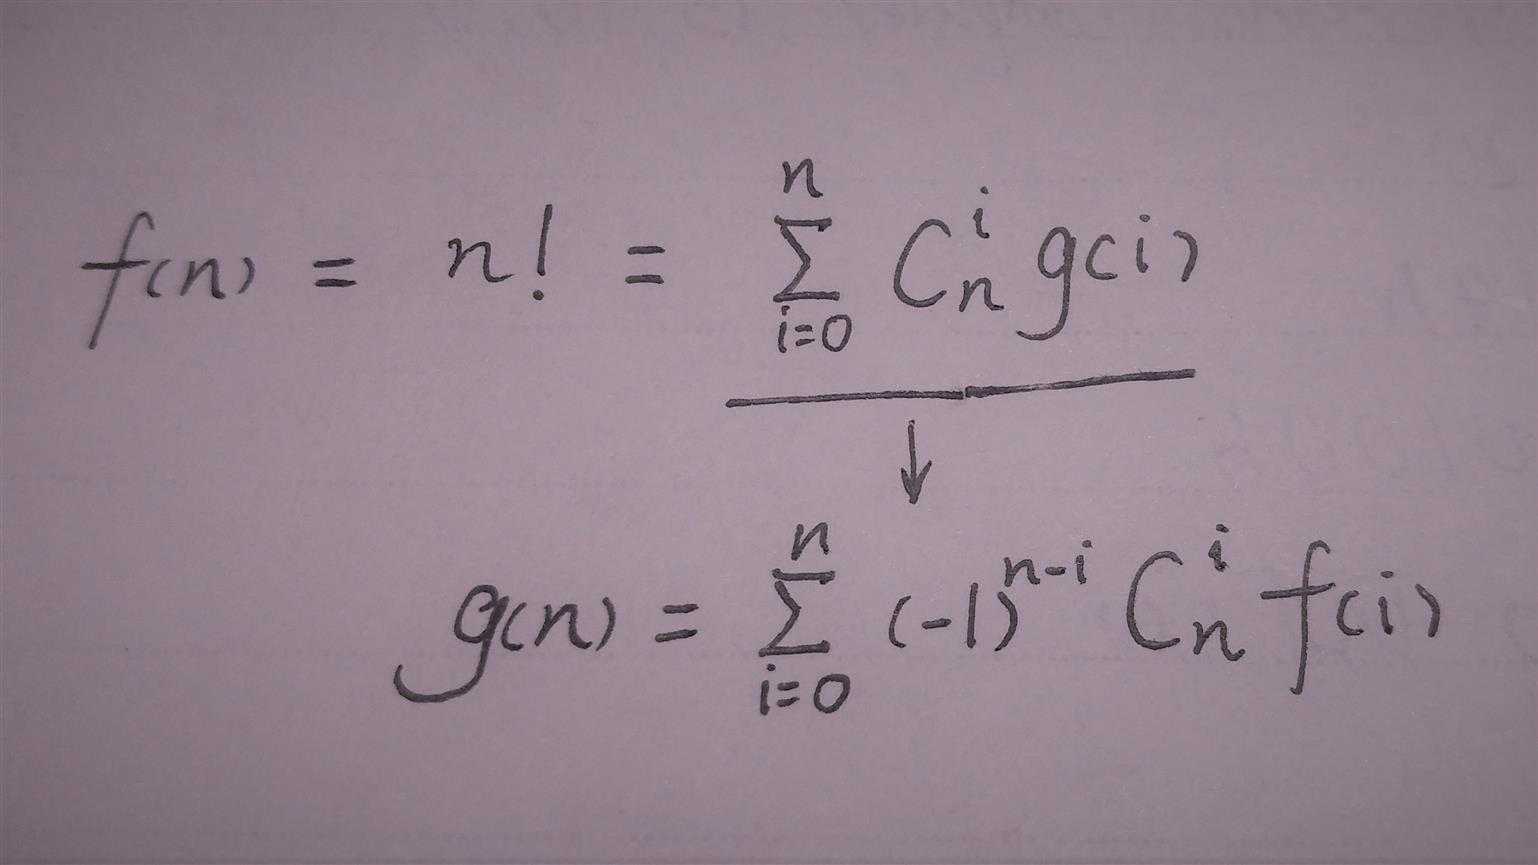 f(n) = n! = \sum_{i=0}^{n} C_n^i g(i)
↓
g(n) = \sum_{i=0}^{n} (-1)^{n-i} C_n^i f(i)